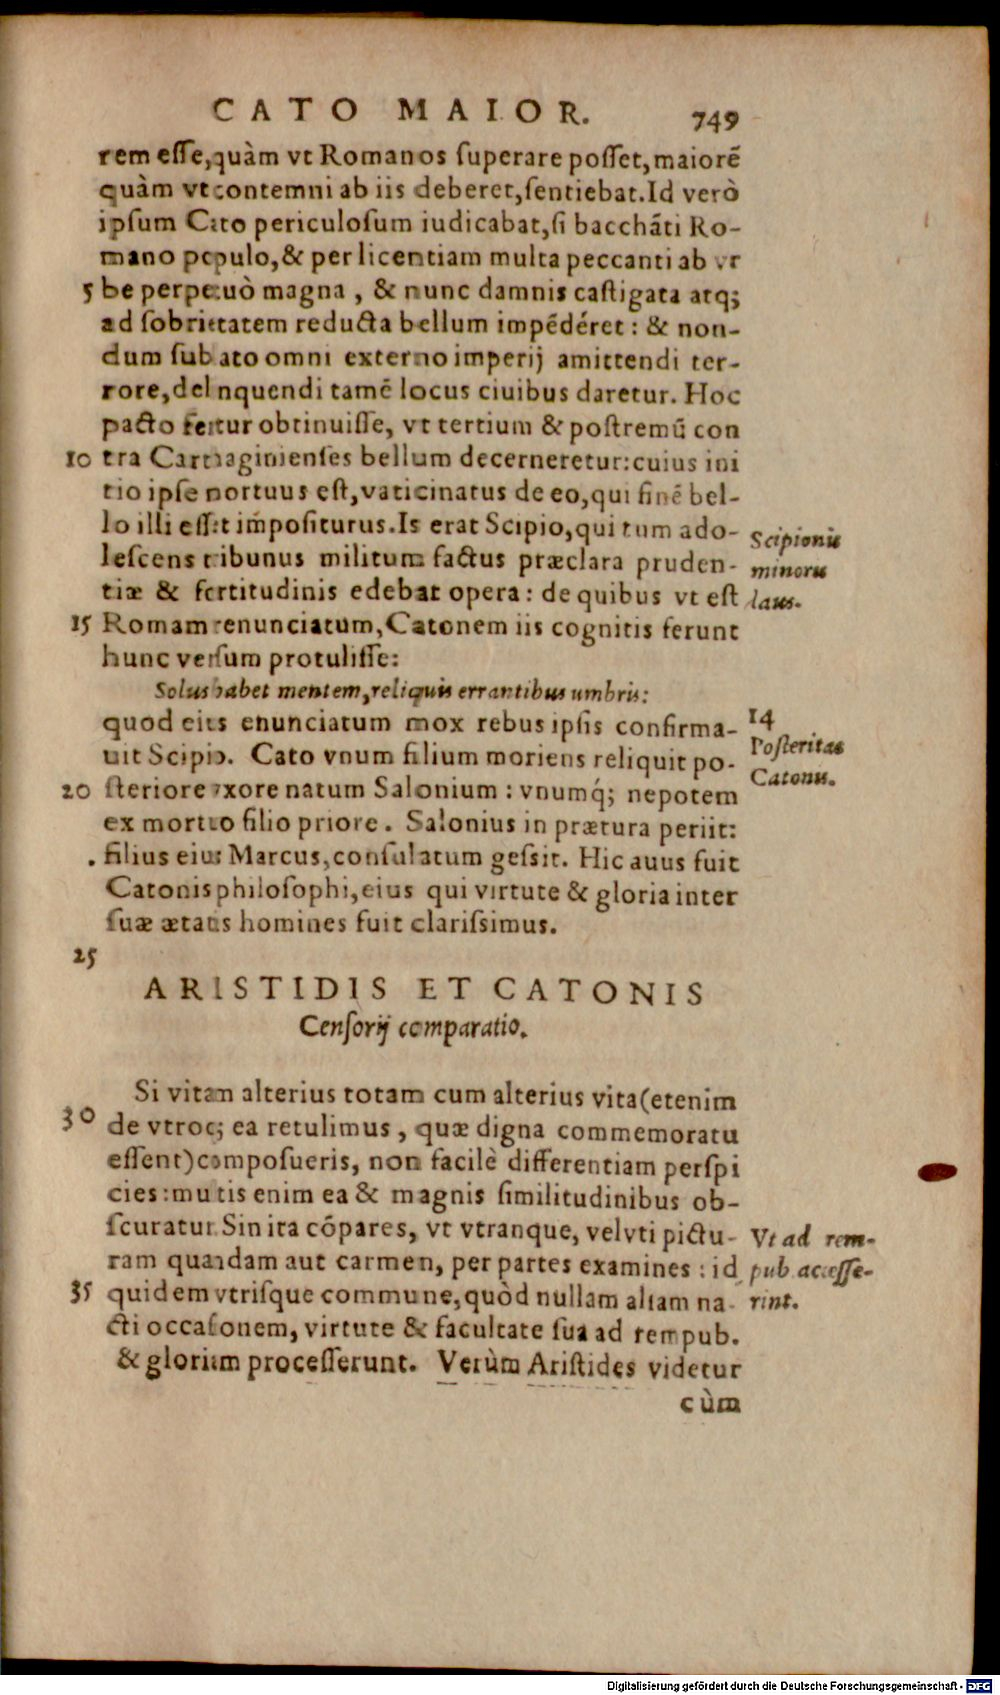 CATO MAIOR. 749
rem eſſe, quàm vt Romanos ſuperare poſſet, maiorẽ
quàm vt contemni ab iis deberet, ſentiebat. Id verò
ipſum Cato periculoſum iudicabat, ſi bacchãti Ro-
mano populo, & per licentiam multa peccanti ab vr
5 be perpetuò magna, & nunc damnis caſtigata atq;
ad ſobrietatem reducta bellum impẽdéret: & non-
dum ſublato omni externo imperij amittendi ter-
rore, delinquendi tamẽ locus ciuibus daretur. Hoc
pacto fertur obtinuiſſe, vt tertium & poſtremũ con
10 tra Carthaginienſes bellum decerneretur: cuius ini
tio ipſe mortuus eſt, vaticinatus de eo, qui finẽ bel-
lo illi eſſet impoſiturus. Is erat Scipio, qui tum ado-
leſcens tribunus militum factus præclara pruden-
tiæ & fortitudinis edebat opera: de quibus vt eſt
15 Romam renunciatum, Catonem iis cognitis ferunt
hunc verſum protuliſſe:
Solus habet mentem, reliquis errantibus umbris:
quod eius enunciatum mox rebus ipſis confirma-
uit Scipio. Cato vnum filium moriens reliquit po-
20 ſteriore vxore natum Salonium: vnumq́; nepotem
ex mortuo filio priore. Salonius in prætura periit:
filius eius Marcus, conſulatum geſsit. Hic auus fuit
Catonis philoſophi, eius qui virtute & gloria inter
ſuæ ætatis homines fuit clariſsimus.
25
Scipionis
minoris
laus.
14
Poſteritas
Catonis.
ARISTIDIS ET CATONIS
Cenſorij comparatio.
Si vitam alterius totam cum alterius vita (etenim
30 de vtroq; ea retulimus, quæ digna commemoratu
eſſent) compoſueris, non facilè differentiam perſpi
cies: multis enim ea & magnis ſimilitudinibus ob-
ſcuratur. Sin ita cõpares, vt vtranque, velvti pictu-
ram quandam aut carmen, per partes examines: id
35 quidem vtriſque commune, quòd nullam aliam na-
cti occaſionem, virtute & facultate ſua ad rempub.
& gloriam proceſſerunt. Verùm Ariſtides videtur
cùm
Vt ad rem-
pub. acceſſe-
rint.
Digitalisierung gefördert durch die Deutsche Forschungsgemeinschaft - DFG